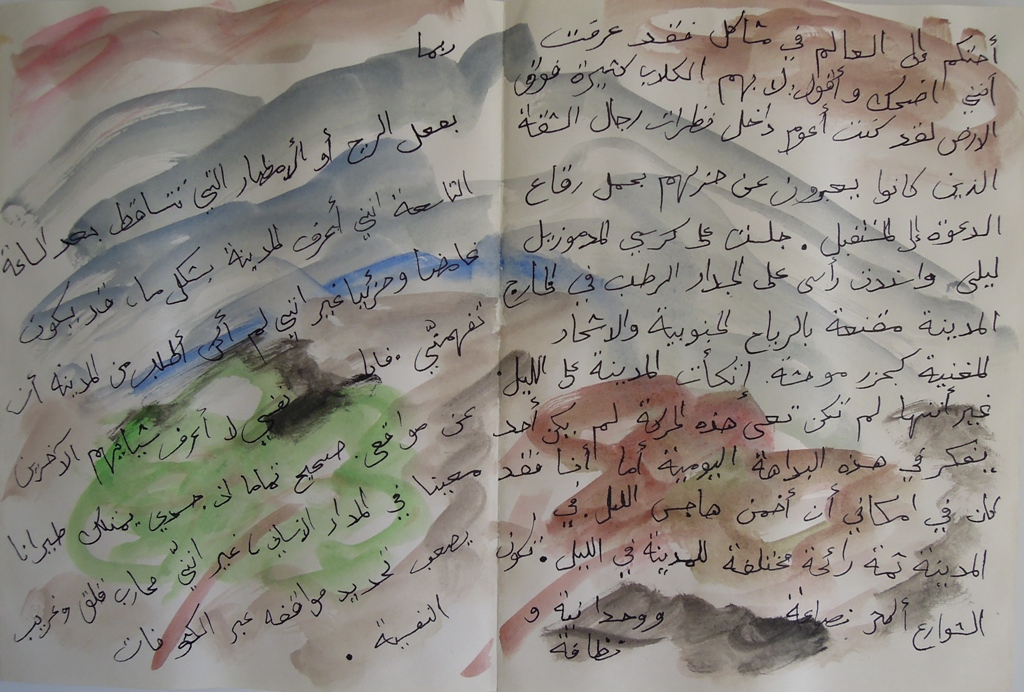 أحتكم إلى العالم في مشاكل فقد عرفت
أنني اضحك وأقول لا بهم الكلاب كثيرة فوق
الارض لقد كنت أعوم داخل قطرات رجال الشقة
الذين كانوا يعبرون عن حزنهم بحمل رقاع
الدعوة إلى المستقبل . جلست على كرسي المدموزيل
ليلى واسندت رأسي على الجدار الرطب في الخارج
المدينة مقنعة بالرياح الجنوبية والاشجار
المغنية كجزر موحشة. اتكأت المدينة على الليل.
غير أنها لم تكن تعي هذه الحركة لم يكن أحد
يفكر في هذه البداهة اليومية أما أنا فقد
كان في امكاني أن أخمن هاجس الليل. في
المدينة ثمة رائحة مختلفة للمدينة في الليل . تكون
الشوارع أكثر نصاعة ووحدانية و
نظافة
ربما
بفعل الريح أو الأمطار التي تتساقط بعد الساعة
التاسعة انني أعرف المدينة بشكل ما، قد يكون
غامضا وجزئيا غير انني لم أكن أطلب من المدينة أن
تفهمني .
نفسي لا أعرف شيئا يهم الاخرين
عن مواقعي. صحيح تماما ان جسدي يمتلك طيرانا
معينا في المدار الانساني، غير انني محارب قلق وغريب
يصعب تحديد مواقفه عبر الكشوفات
النفسية .